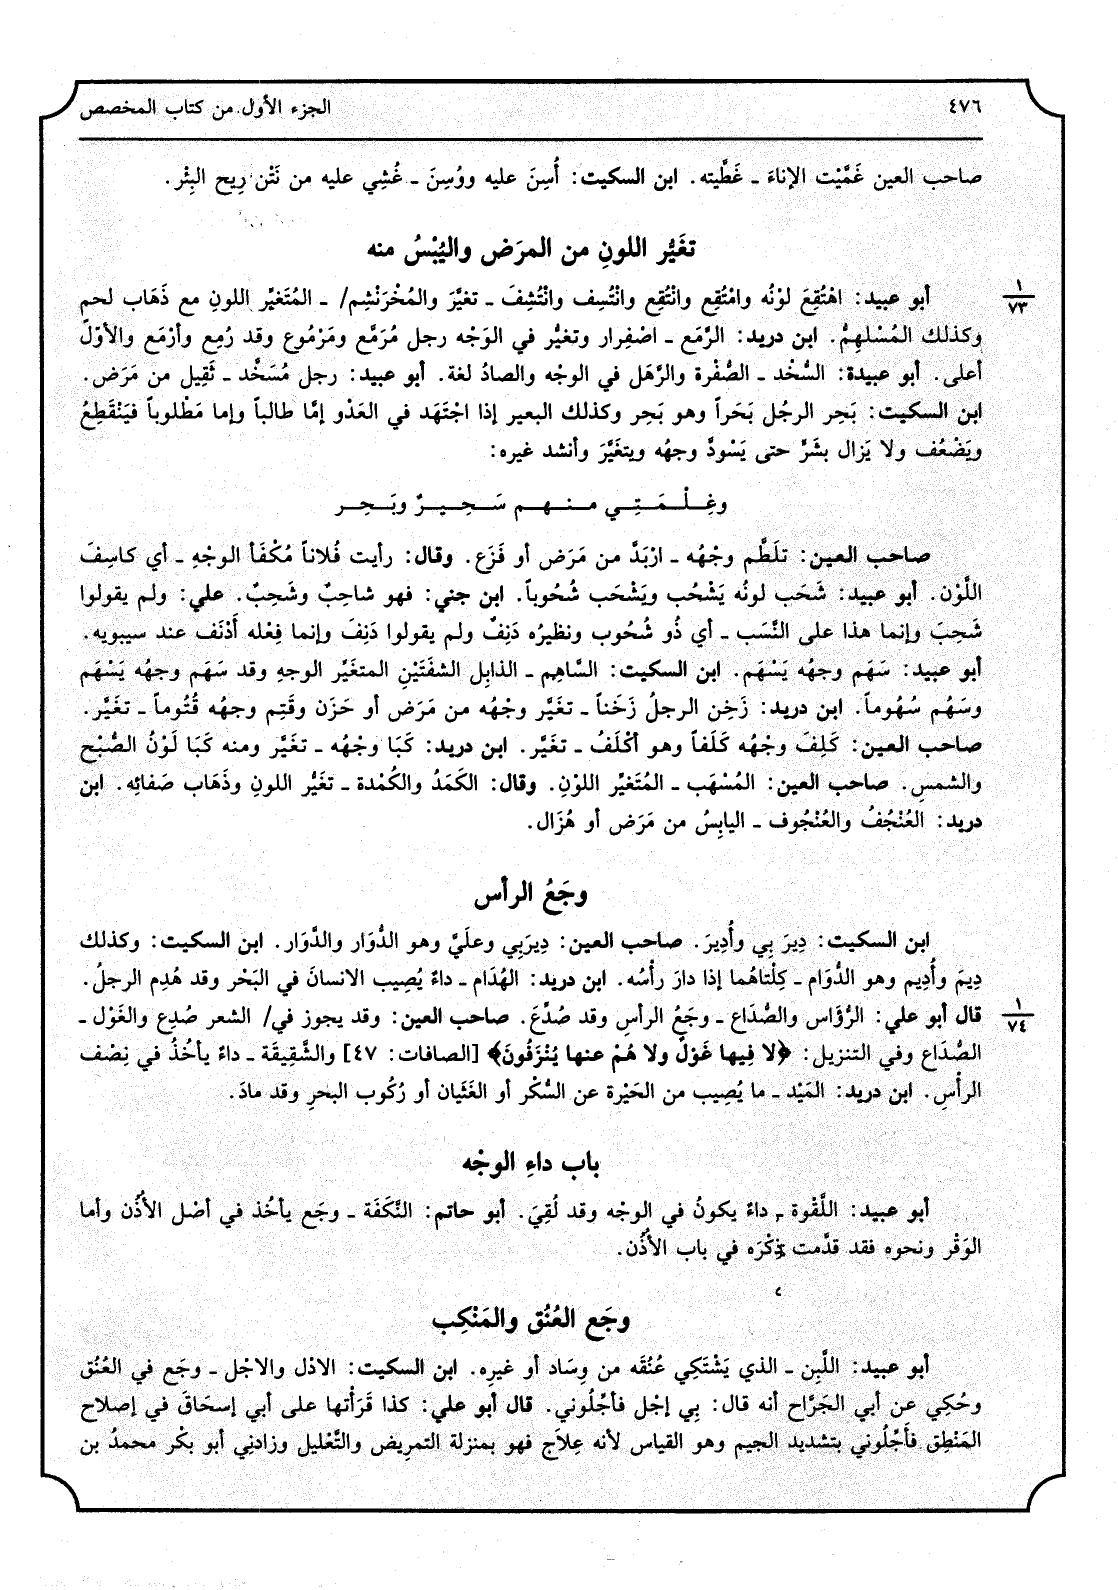 ٤٧٦
الجزء الأول من كتاب المخصص
صاحب العين غَمَّيْت الإناءَ ـ غَطَّيته. ابن السكيت: أُسِنَ عليه ووُسِنَ ـ غُشِي عليه من نَتْن رِيح البِئْر.
تغَيُّر اللونِ من المرَض واليُبْسُ منه
١
٧٣
أبو عبيد: اهْتُقِعَ لوْنُه وامْتُقِع وانْتُقِع وانْتُسِف وانْتُشِفَ ـ تغيَّرَ والمُخْرَنْشِم/ ـ المُتَغيِّر اللونِ مع ذَهَاب لحم
وكذلك المُسْلهِمُّ. ابن دريد: الرَّمَع ـ اصْفِرار وتغيُّر في الوَجْه رجل مُرَمَّع ومَرْمُوع وقد رُمِع وأرْمَع والأوّلُ
أعلى. أبو عبيدة: السُّخْد ـ الصُّفْرة والرَّهَل في الوجْه والصادُ لغة. أبو عبيد: رجل مُسَخَّد ـ ثَقِيل من مَرَض.
ابن السكيت: بَحِر الرجُل بَحَراً وهو بَحِر وكذلك البعير إذا اجْتَهَد في العَدْو إمَّا طالباً وإما مَطْلوباً فيَنْقَطِعُ
ويَضْعُف ولا يَزال بشَرٍّ حتى يَسْودَّ وجهُه ويتغَيَّرَ وأنشد غيره:
وغِـلْـمَـتِـي مـنـهـم سَـحِـيـرٌ وبَـحِـر
صاحب العين: تلَطَّم وجْهُه ـ ارْبَدَّ من مَرَض أو فَزَع. وقال: رأيت فُلاناً مُكْفَأ الوجْهِ ـ أي كاسِفَ
اللَّوْن. أبو عبيد: شَحَب لونُه يَشْحُب ويَشْحَب شُحُوباً. ابن جني: فهو شاحِبٌ وشَحِبٌ. علي: ولم يقولوا
شَحِبَ وإنما هذا على النَّسَب ـ أي ذُو شُحُوب ونظيرُه دَنِفٌ ولم يقولوا دَنِفَ وإنما فِعْله أَدْنَف عند سيبويه.
أبو عبيد: سَهَم وجهُه يَسْهَم. ابن السكيت: السَّاهِم ـ الذابِل الشفَتَيْنِ المتغَيِّر الوجهِ وقد سَهَم وجهُه يَسْهَم
وسَهُم سُهُوماً. ابن دريد: زَخِن الرجلُ زَخَناً ـ تغَيَّر وجْهُه من مَرَض أو حَزَن وقَتِم وجهُه قُتُوماً ـ تغَيَّر.
صاحب العين: كَلِفَ وجْهُه كَلَفاً وهو أكْلَفُ ـ تغَيَّر. ابن دريد: كَبَا وجْهُه ـ تغَيَّر ومنه كَبَا لَوْنُ الصُّبْح
والشمسِ. صاحب العين: المُسْهَب ـ المُتَغيِّر اللوْنِ. وقال: الكَمَدُ والكُمْدة ـ تغَيُّر اللونِ وذَهَاب صَفائِه. ابن
دريد: العُنْجُفُ والعُنْجُوف ـ اليابِسُ من مَرَض أو هُزَال.
وجَعُ الرأس
ابن السكيت: دِيرَ بِي وأُدِيرَ. صاحب العين: دِيرَبِي وعلَيَّ وهو الدُّوَار والدَّوَار. ابن السكيت: وكذلك
دِيمَ وأُدِيم وهو الدُّوَام ـ كِلْتاهُما إذا دارَ رأْسُه. ابن دريد: الهُدَام ـ داءٌ يُصِيب الانسانَ في البَحْر وقد هُدِم الرجلُ.
١
٧٤
قال أبو علي: الرُّؤَاس والصُّدَاع ـ وجَعُ الرأسِ وقد صُدِّعَ. صاحب العين: وقد يجوز في/ الشعر صُدِع والغَوْل ـ
الصُّدَاع وفي التنزيل: ﴿لا فِيها غَوْلٌ ولا هُمْ عنها يُنْزَفُونَ﴾ [الصافات: ٤٧] والشَّقِيقَة ـ داءٌ يأخُذُ في نِصْف
الرأْسِ. ابن دريد: المَيْد ـ ما يُصِيب من الحَيْرة عن السُّكْر أو الغَثَيان أو رُكُوب البحرِ وقد مادَ.
باب داءِ الوجْه
أبو عبيد: اللَّقْوة ـ داءٌ يكونُ في الوجْه وقد لُقِيَ. أبو حاتم: النَّكَفَة ـ وجَع يأخُذ في أصْل الأُذُن وأما
الوَقْر ونحوه فقد قدَّمت ذِكْرَه في باب الأُذُن.
وجَع العُنُق والمَنْكِب
أبو عبيد: اللَّبِن ـ الذي يَشْتَكِي عُنُقَه من وِسَاد أو غيرِه. ابن السكيت: الادْل والاجْل ـ وجَع في العُنُق
وحُكِي عن أبي الجَرَّاح أنه قال: بِي إجْل فأجِّلُوني. قال أبو علي: كذا قَرَأْتها على أبي إسحَاقَ في إصلاح
المَنْطِق فأَجِّلُوني بتشديد الجيم وهو القياس لأنه عِلاَج فهو بمنزلة التمرِيض والتَّعْليل وزادنِي أبو بكْر محمدُ بن